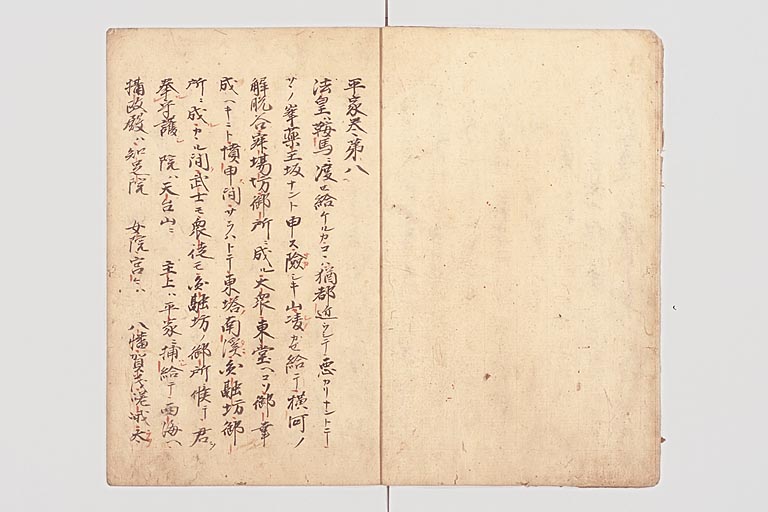 平家巻第八
法皇ハ鞍馬ニ渡セ給ケルカコハ猶都近クテ悪カリナントテ
サノ峯薬王坂ナント申ス険シキ山凌カセ給テ横河ノ
解脱谷寂場坊御所ニ成ル大衆東堂ヘコソ御幸
成ヘキニト憤申間サラハトテ東塔南渓円融坊御
所ニ成ニケル間武士モ衆徒モ円融坊ノ御所候テ君ヲ
奉守護 院ハ天台山ニ 主上ハ平家ニ捕給テ西海ヘ
摂政殿ハ知足院 女院宮々ハ 八幡賀茂嵯峨太